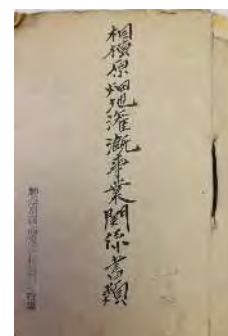 相模原畑地灌漑事業関係書類